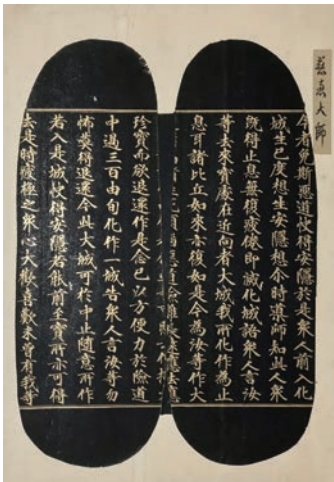 慈惠大師
今者免斯惡道快得安隱於是衆人前入化
城生已度想生安隱想尒時導師知此人衆
既得止息無復疲惓即滅化城語衆人言汝
等去來寶處在近向者大城我所化作為止
息耳諸比丘如來亦復如是今為汝等作大
珍寶而欲退還作是念已以方便力於險道
中過三百由旬化作一城告衆人言汝等勿
怖莫得退還今此大城可於中止隨意所作
若入是城快得安隱若能前至寶所亦可得
去是時疲極之衆心大歡喜歎未曾有我等